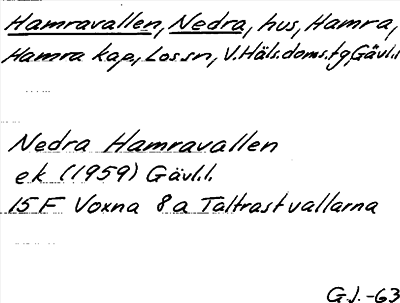 Hamravallen, Nedra, hus, Hamra,
Hamra kap, Los sn, V. Häls. doms. tg, Gävl. l
Nedra Hamravallen
ek (1959) Gävl. l.
15 F Voxna 8 a Taltrastvallarna
G.J. -63